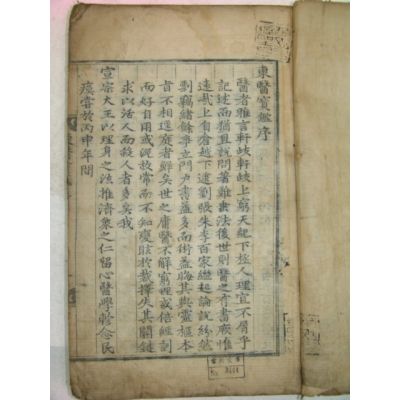 東醫寶鑑序
醫者雅言軒岐軒岐上窮天紀下極人理宜不屑乎
記述而猶且說問著難垂法後世則醫之有書厥惟
遠哉上自倉越下逮劉張朱李百家繼起論說紛然
剽竊緖餘爭立門戶書益多而術益晦其與靈樞本
旨不相逕庭者鮮矣世之庸醫不解窮理或倍經訓
而好自用或泥故常而不知變眩於裁擇失其關鍵
求以活人而殺人者多矣我
宣宗大王以理身之法推濟衆之仁留心醫學軫念民
瘼嘗於丙申年間